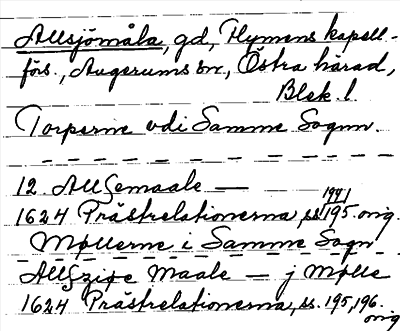 Allsjömåla, gd, Flymens kapell-
förs., Augerums sn, Östra härad,
Blek. l.
Torperne vdi Samme Sognn.
12. Allsemaale —
1941
1624 Prästrelationerna, ss. 195. orig.
Møllerne i Samme Sogn
Maale — j Mølle
1624 Prästrelationerna, ss. 195, 196.
orig